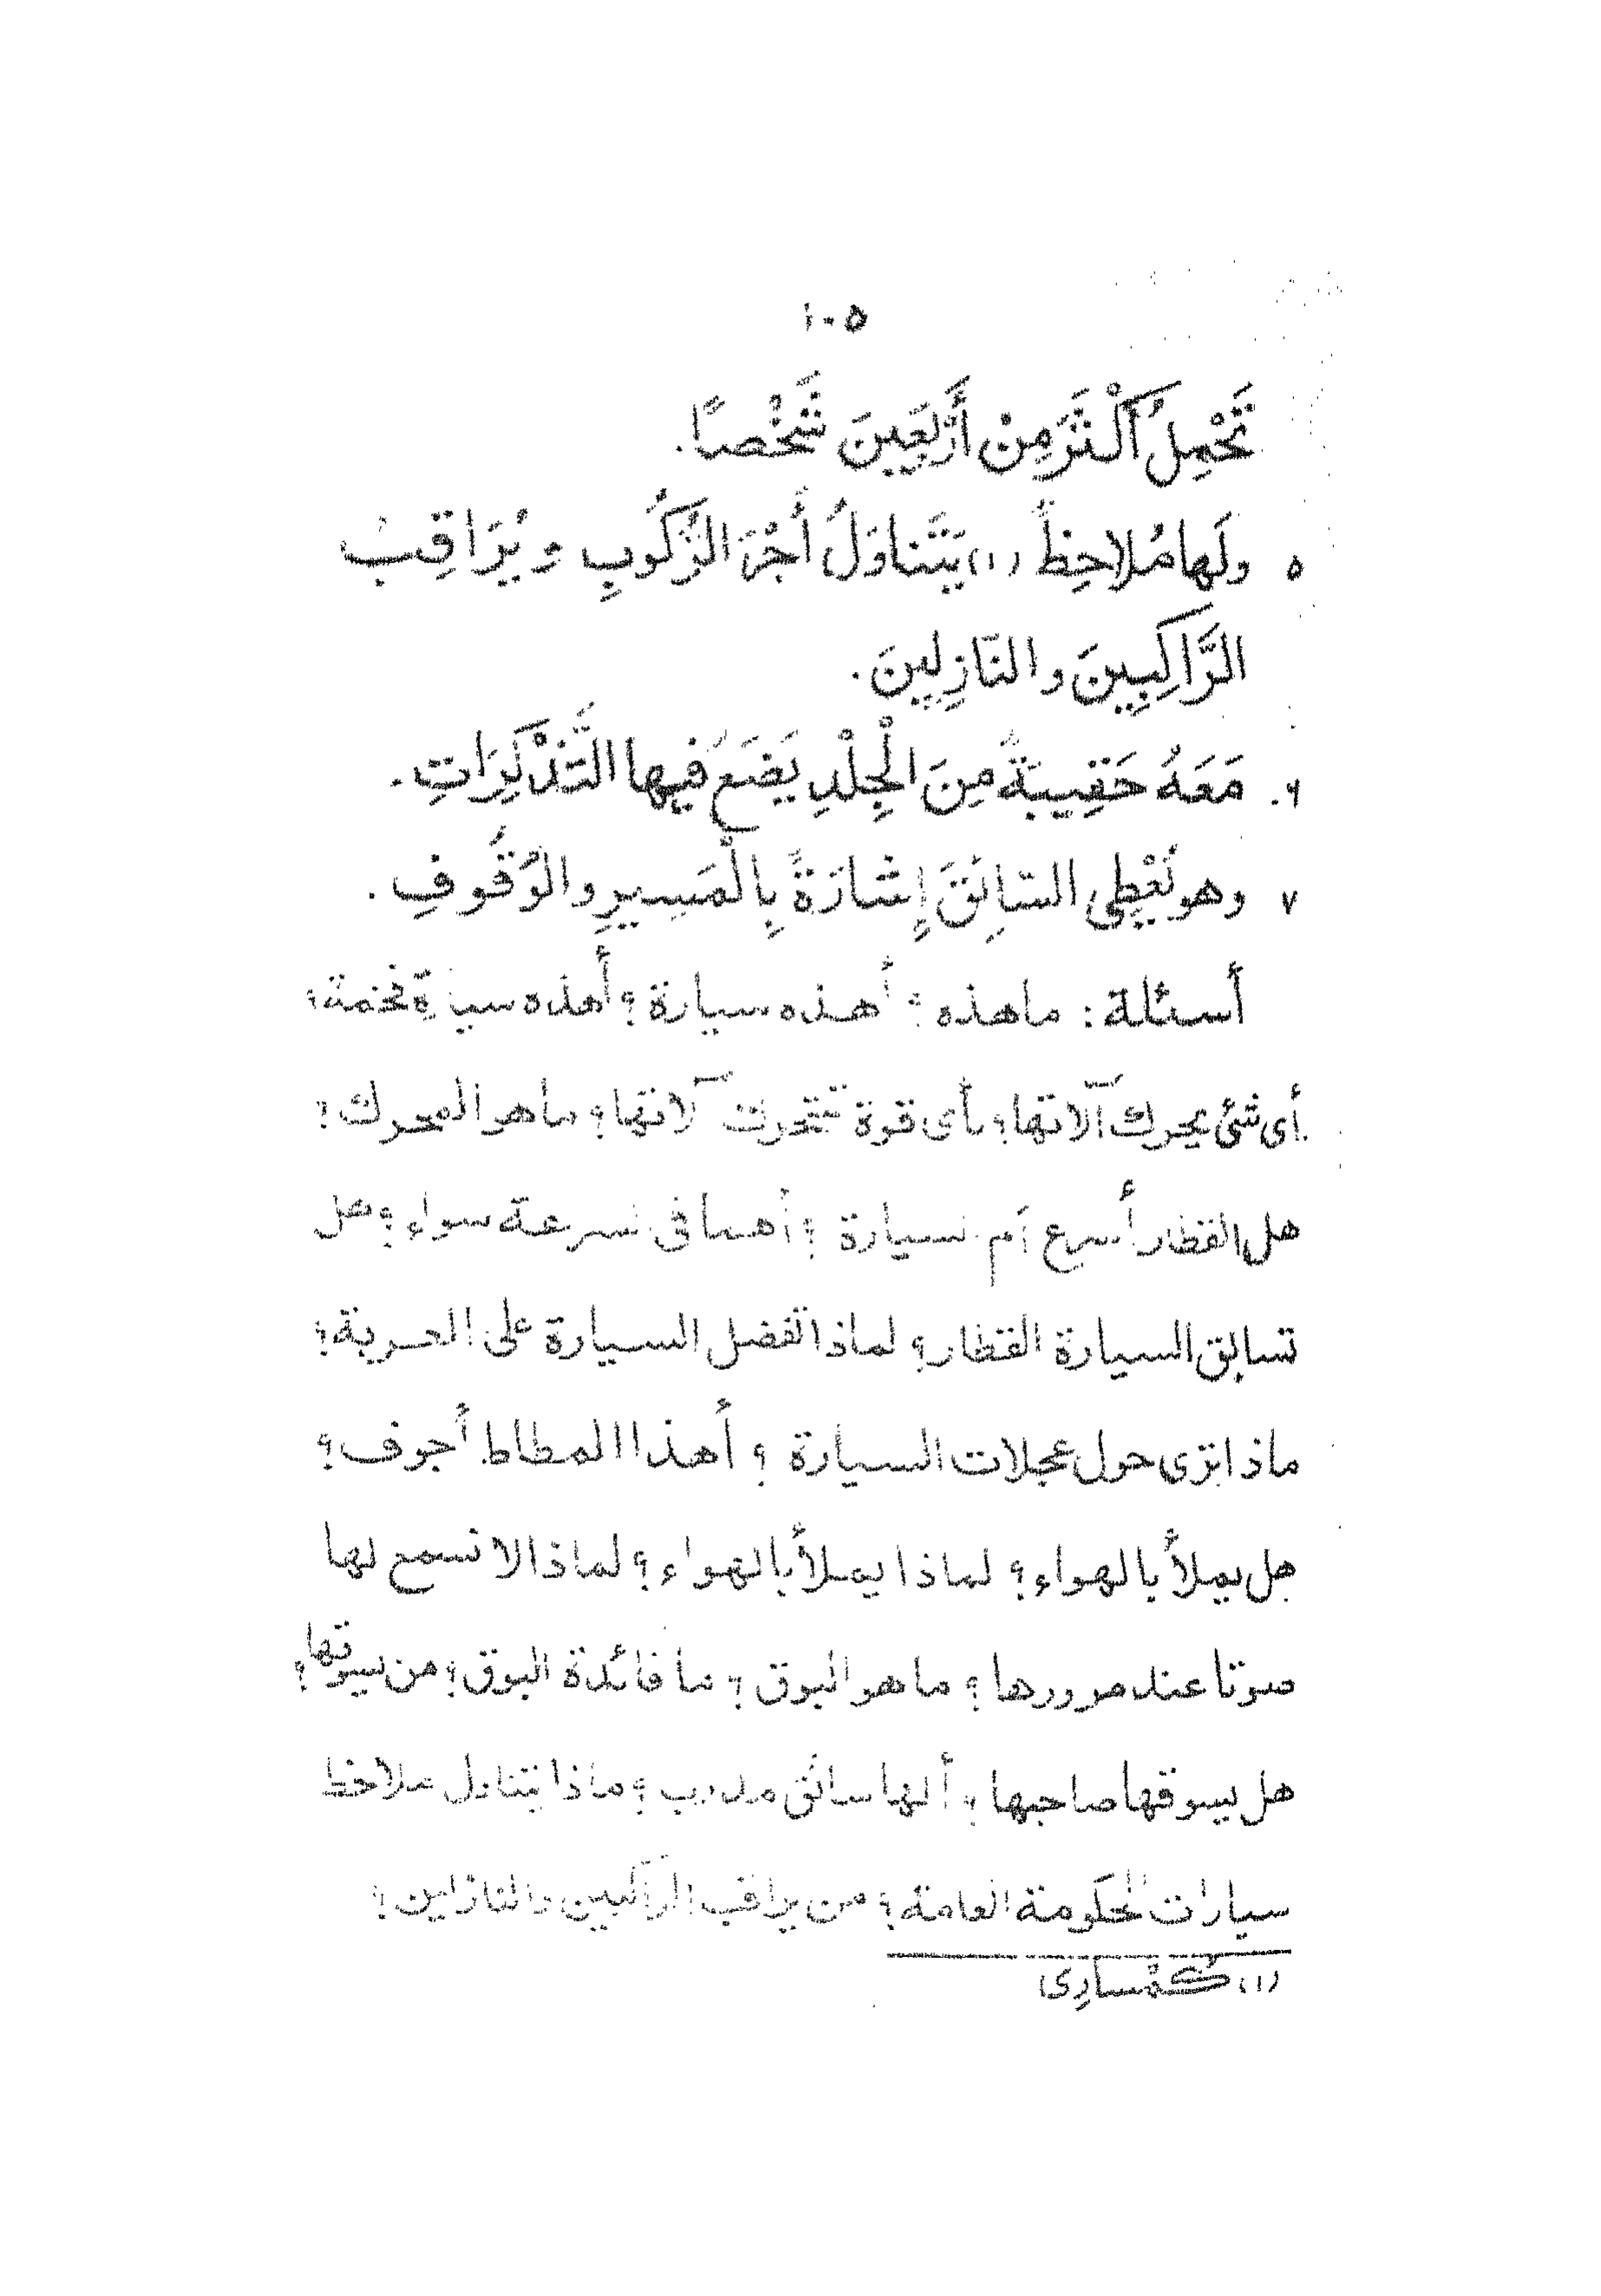 ١٠٥
تَحْمِلُ أَكْثَرَ مِنْ أَرْبَعِينَ شَخْصًا.
٥ ولَها مُلاحِظٌ (١) يَتَناوَلُ أَجْرَ الرُّكُوبِ ويُرَاقِبُ
الرَّاكِبِينَ والنَّازِلِينَ.
٦. مَعَهُ حَقِيبَةٌ مِنَ الْجِلْدِ يَضَعُ فيها التَّذْكِرَاتِ.
٧ وهو يُعْطِى السَّائِقَ إِشَارَةً بِالْمَسِيرِ والْوُقُوفِ.
أسئلة: ماهذه؟ أهذه سيارة؟ أهذه سيارة فخمة؟
أى شئ يحرك آلاتها؟ بأى قوة تتحرك آلاتها؟ ماهو المحرك؟
هل القطار أسرع أم السيارة؟ أهما فى السرعة سواء؟ هل
تسابق السيارة القطار؟ لماذا تفضل السيارة على العربة؟
ماذا ترى حول عجلات السيارة؟ أهذا المطاط أجوف؟
هل يملأ بالهواء؟ لماذا يملأ بالهواء؟ لماذا لا تسمع لها
صوتا عند مرورها؟ ما هو البوق؟ ما فائدة البوق؟ من يسوقها؟
هل يسوقها صاحبها؟ ألها سائق مدرب؟ ماذا يتناول ملاحظ
سيارات الحكومة العامة؟ من يراقب الراكبين والنازلين؟
(١) كُمْسارِى